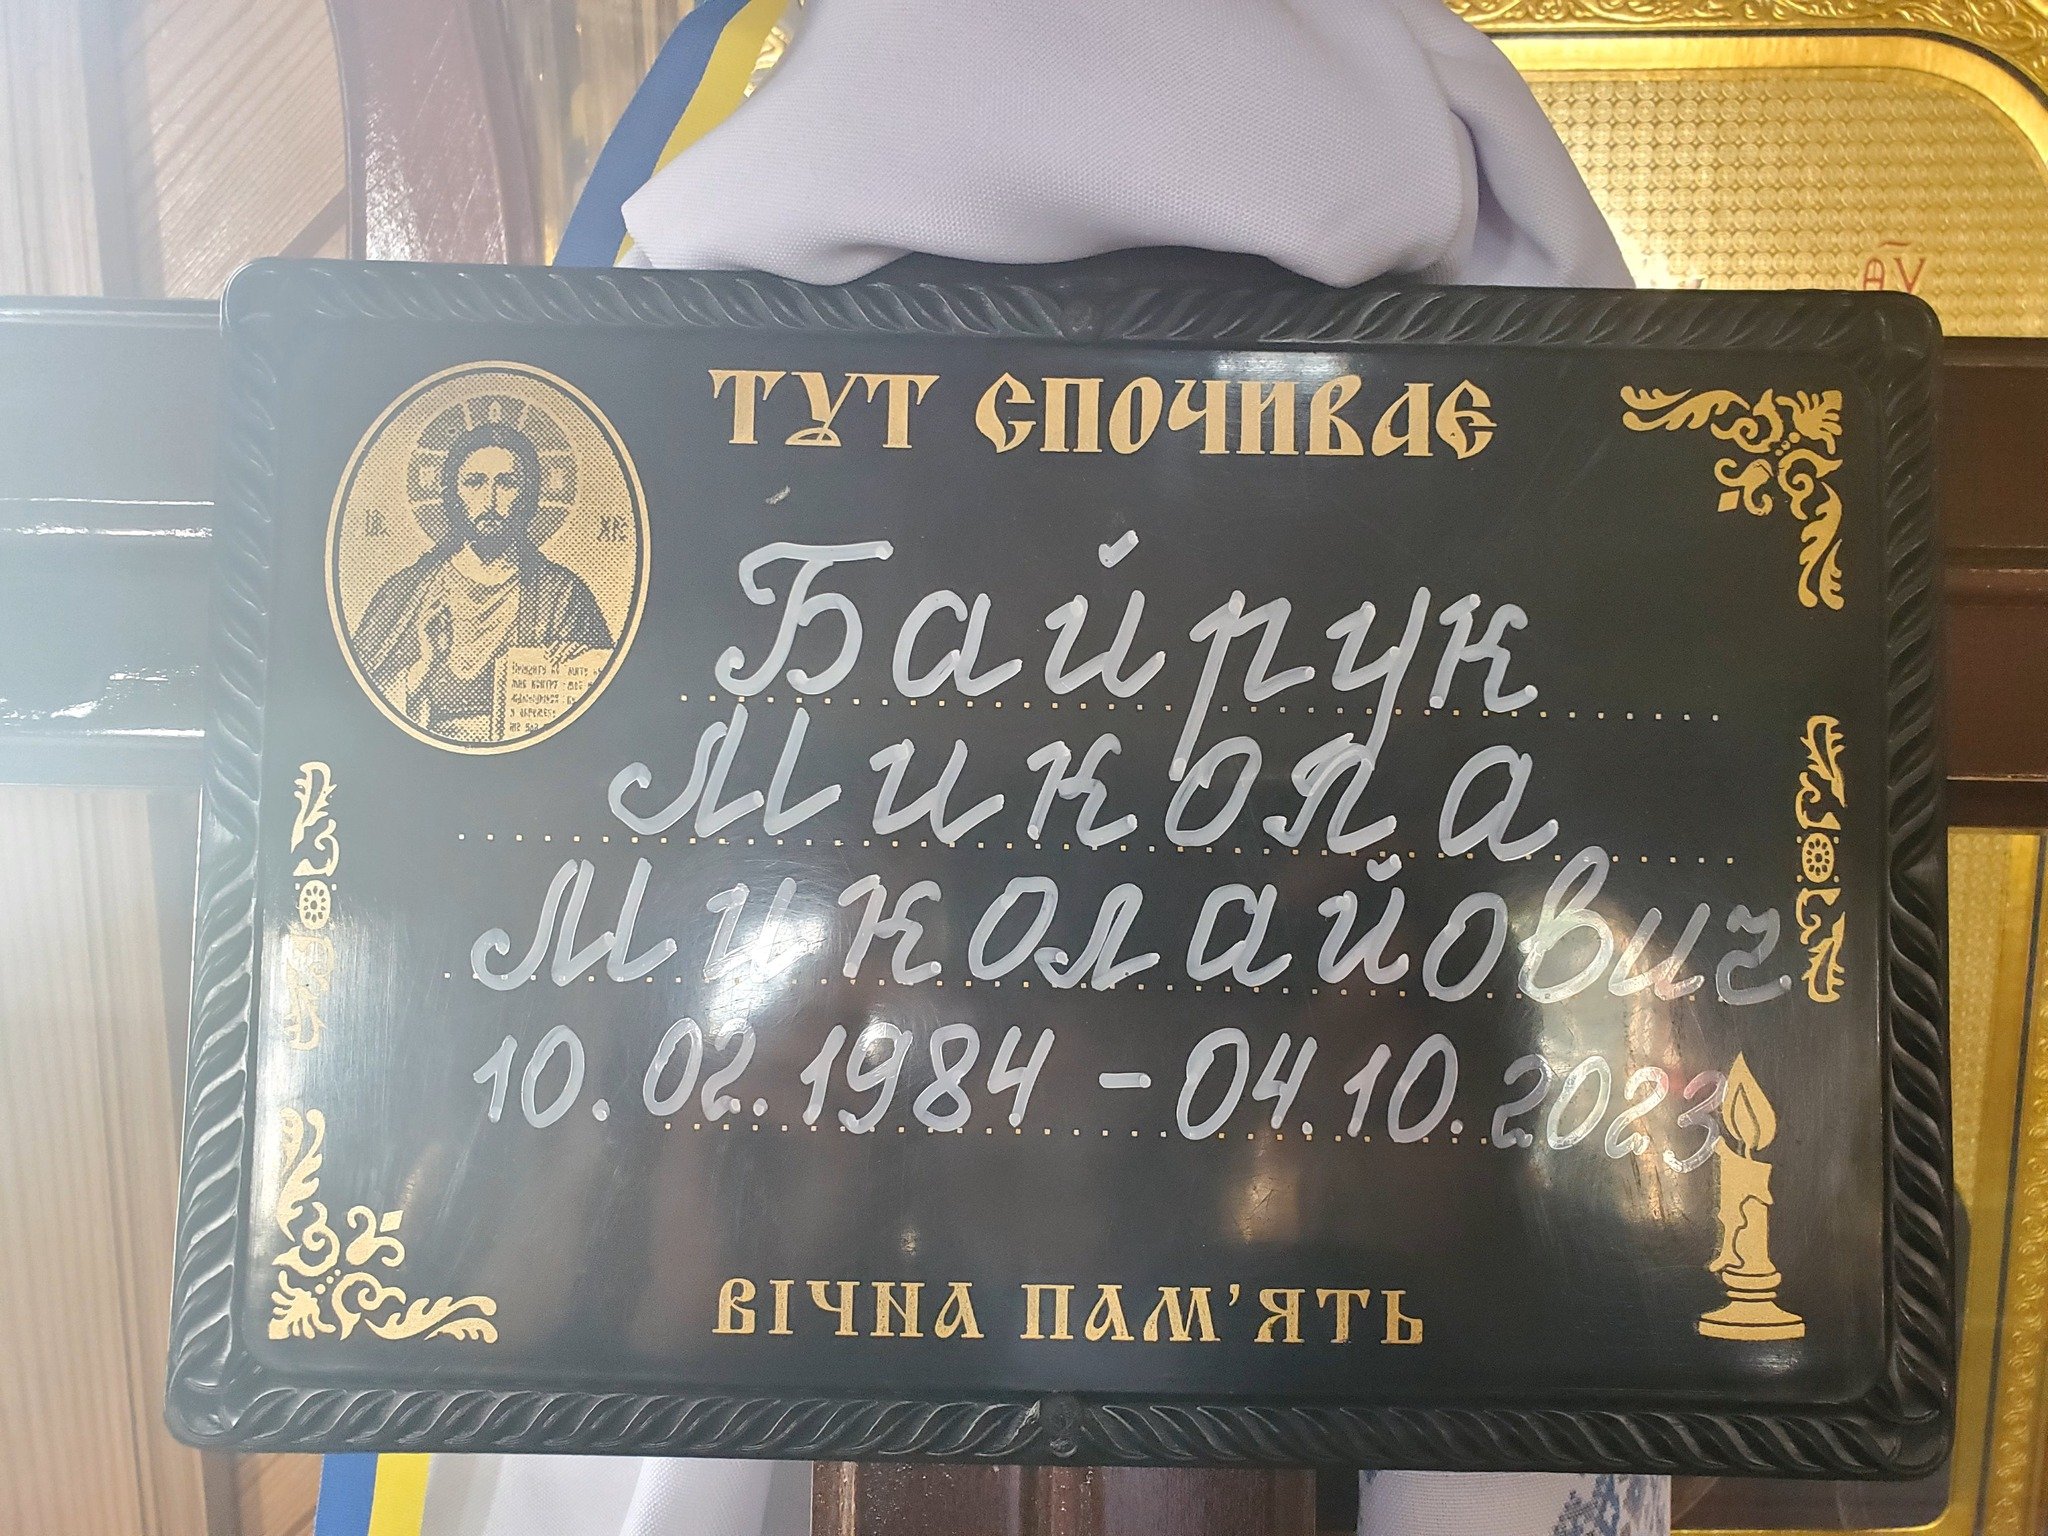 ТУТ СПОЧИВАЄ
Байрук
Микола
Миколайович
10.02.1984 - 04.10.2023
ВІЧНА ПАМ'ЯТЬ